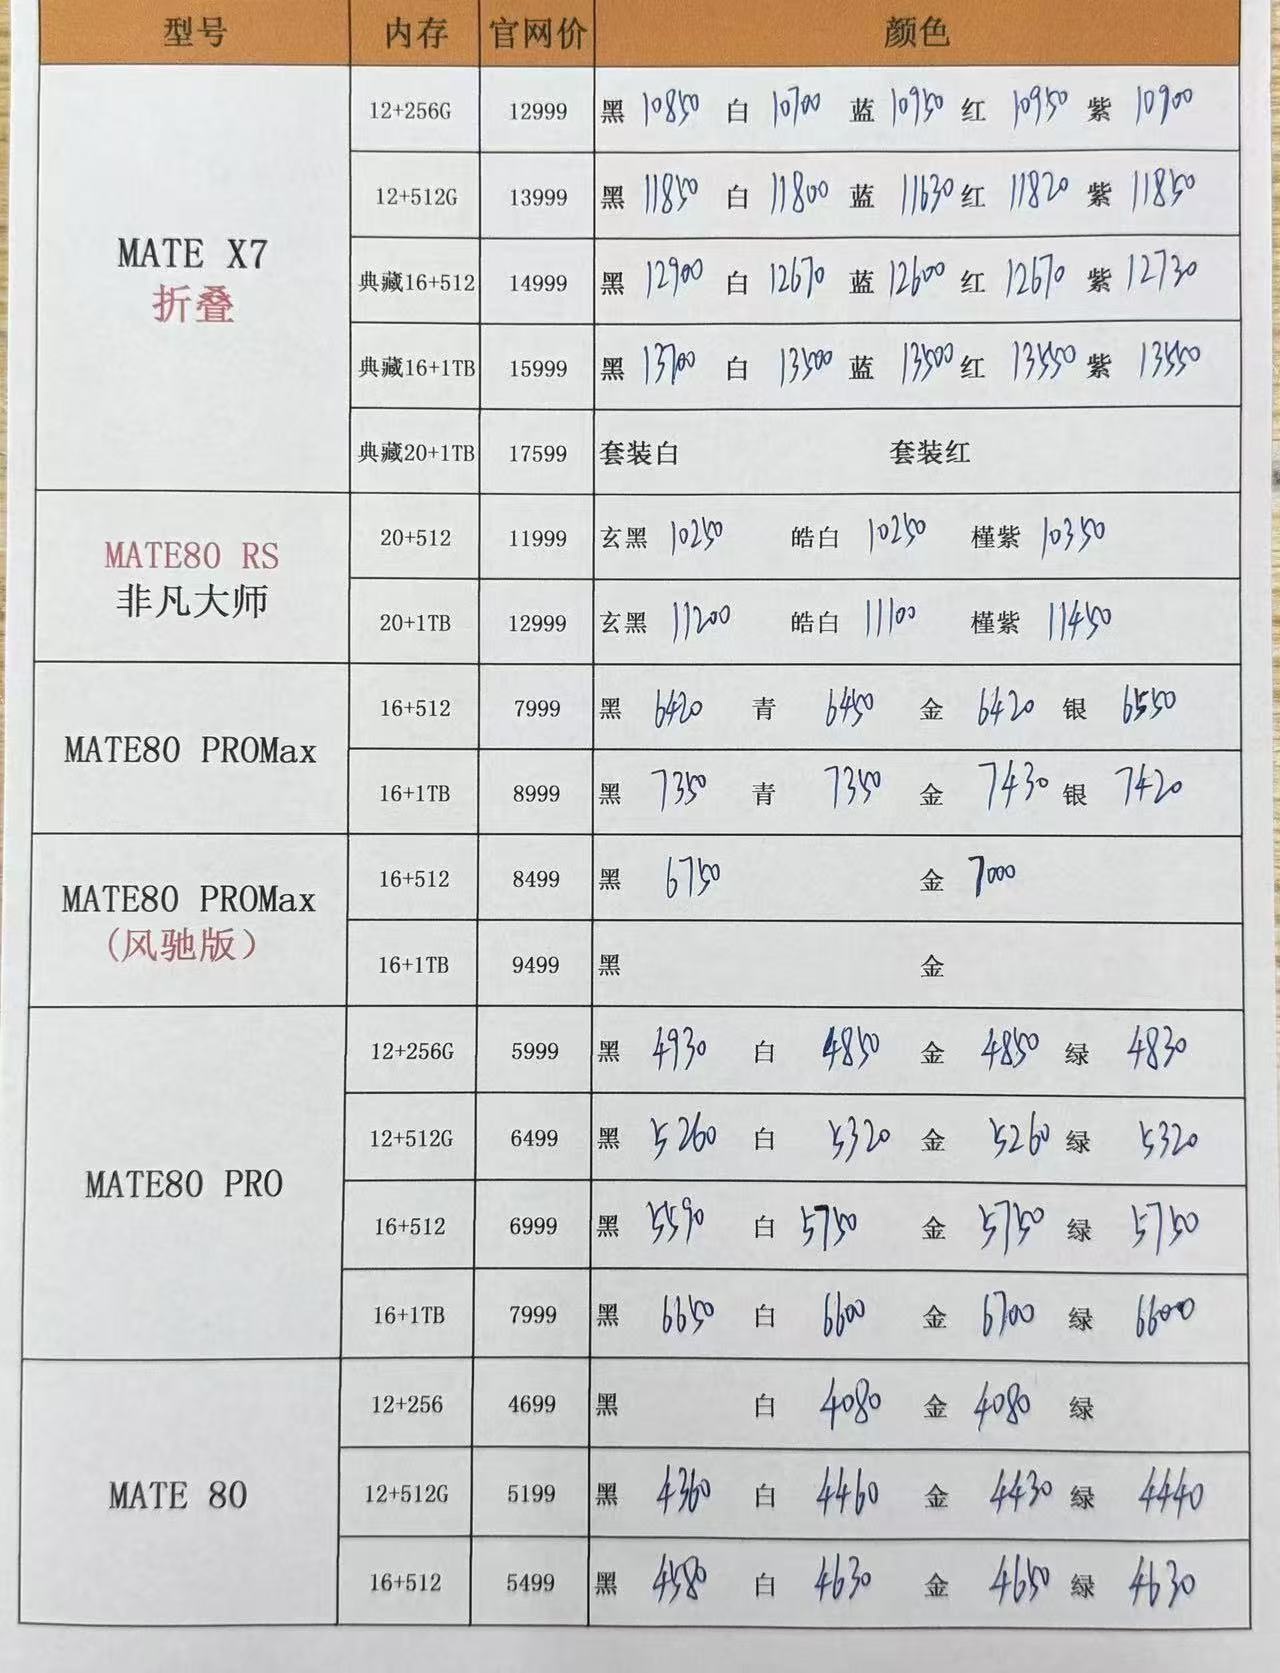 型号 内存 官网价 颜色
12+256G 12999 黑 10850 白 10700 蓝 10950 红 10950 紫 10900
12+512G 13999 黑 11850 白 11800 蓝 11630 红 11820 紫 11850
MATE X7
折叠
典藏16+512 14999 黑 12900 白 12670 蓝 12600 红 12670 紫 12730
典藏16+1TB 15999 黑 13700 白 13500 蓝 13500 红 13550 紫 13550
典藏20+1TB 17599 套装白 套装红
MATE80 RS
非凡大师
20+512 11999 玄黑 10250 皓白 10250 槿紫 10350
20+1TB 12999 玄黑 11200 皓白 11100 槿紫 11450
MATE80 PROMax
16+512 7999 黑 6420 青 6450 金 6420 银 6550
16+1TB 8999 黑 7350 青 7350 金 7430 银 7420
MATE80 PROMax
(风驰版)
16+512 8499 黑 6750 金 7000
16+1TB 9499 黑 金
MATE80 PRO
12+256G 5999 黑 4930 白 4850 金 4850 绿 4830
12+512G 6499 黑 5260 白 5320 金 5260 绿 5320
16+512 6999 黑 5590 白 5750 金 5750 绿 5750
16+1TB 7999 黑 6650 白 6600 金 6700 绿 6600
MATE 80
12+256 4699 黑 白 4080 金 4080 绿
12+512G 5199 黑 4360 白 4460 金 4430 绿 4440
16+512 5499 黑 4580 白 4630 金 4650 绿 4630